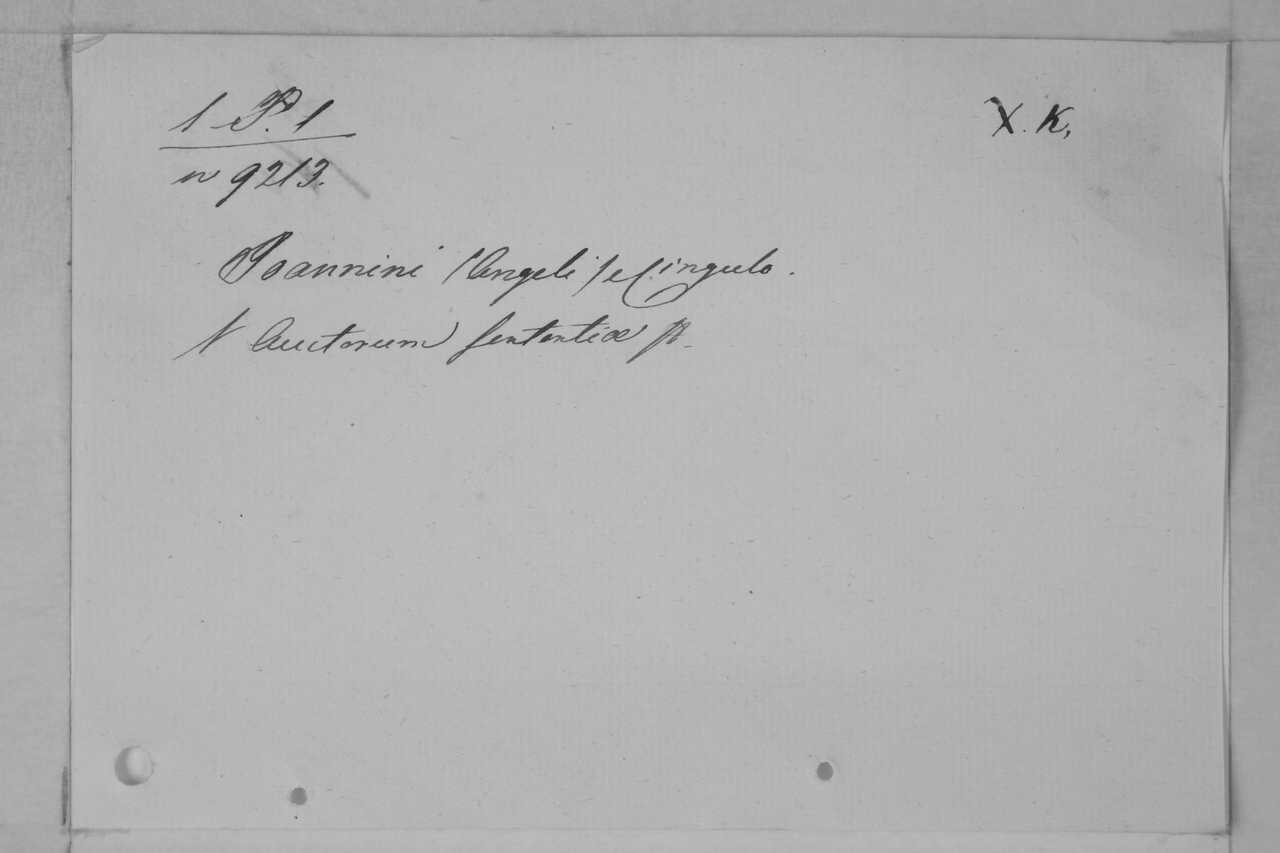 1 P. 1
X. K,
n 9213.
Joannini (Angeli) e Cingulo.
Auctorum sententiæ